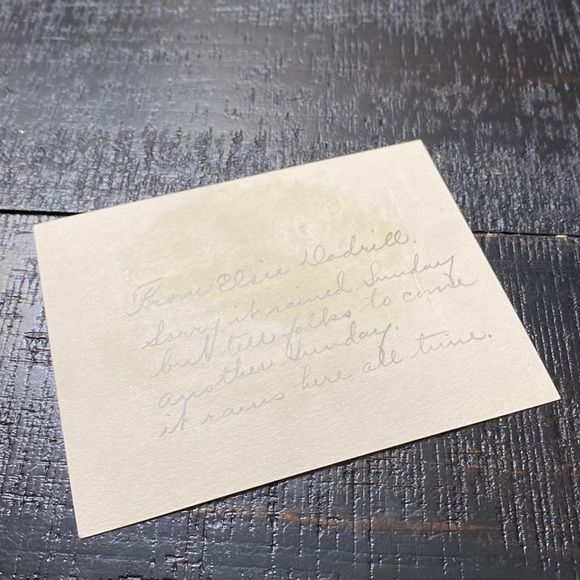 From Elsie Dodrill.
Sorry it rained Sunday
but tell folks to come
another Sunday.
it rains here all time.